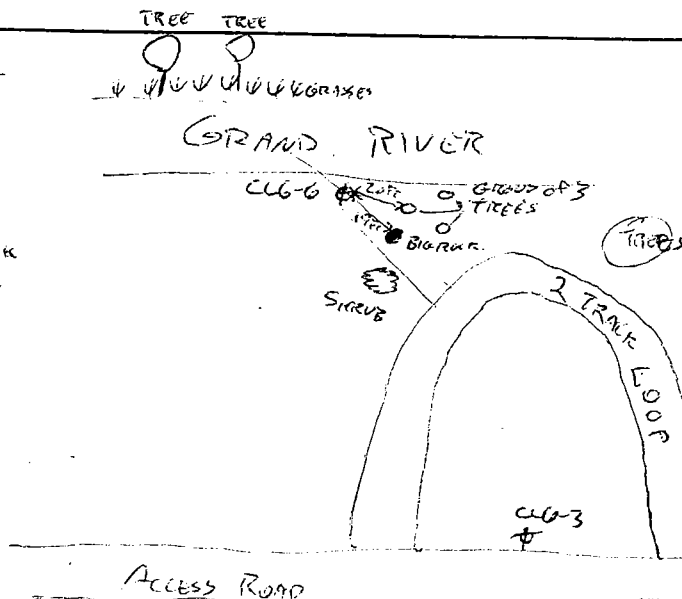 TREE TREE
GRASSES
GRAND RIVER
CLG-6 20FT GROUP OF 3
TREES
BIG ROCK
TREES
SHRUB
2 TRACK LOOP
CLG-3
ACCESS ROAD